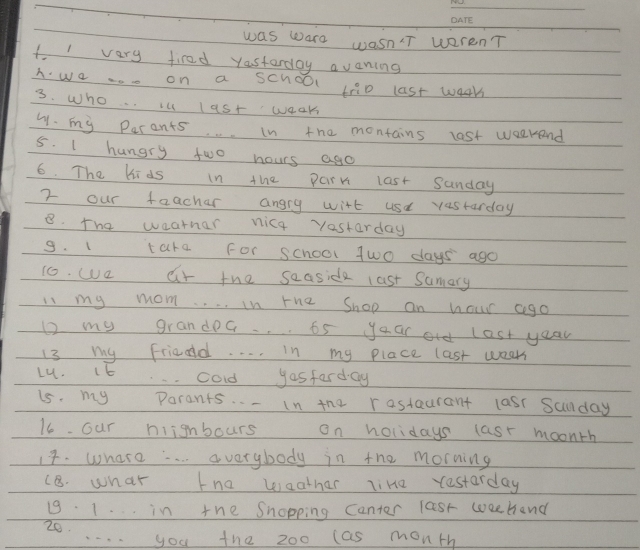 NO.
DATE
was wara wasn'T waranT
1. I vary tirad yastarday avaning
2. wa .... on a school trip last waak
3. who .. ill last waak
4. my Parants .... in tha montains last waakand
5. I hungry two hours ago
6. The kids in tha park last Sunday
7 our taachar angry witt us yastarday
8. tha waathar nica yastarday
9. I lata for school two days ago
10. wa at tha saasida last Sumary
11 my mom .... in tha Shop an hour ago
12 my grandpa .... 65 yaar old last yaar
13 my friadd .... in my placa last waak
14. it ... cold yastarday
15. my Parants .... in tha rastaurant last Sunday
16. our niighbours on holidays last moonth
17. whara .... avarybody in tha morning
18. what tha waathar lika yastarday
19. I ... in tha Shopping Cantar last waakand
20. .... you tha zoo las month